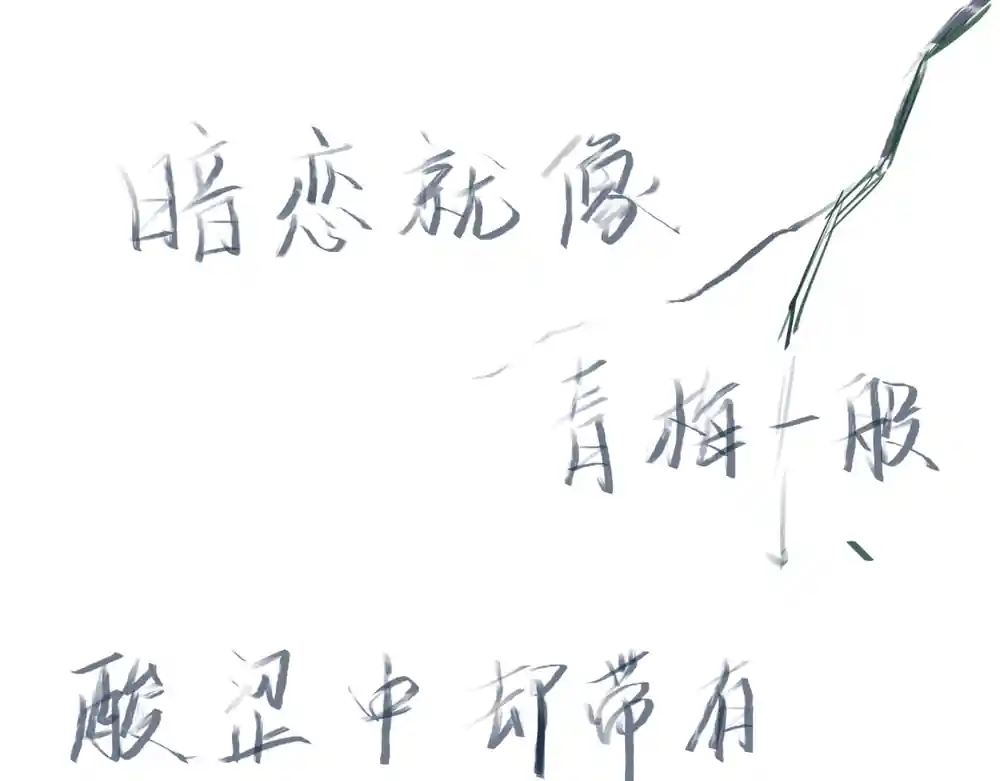 暗恋就像
青梅一般
酸涩中却带有